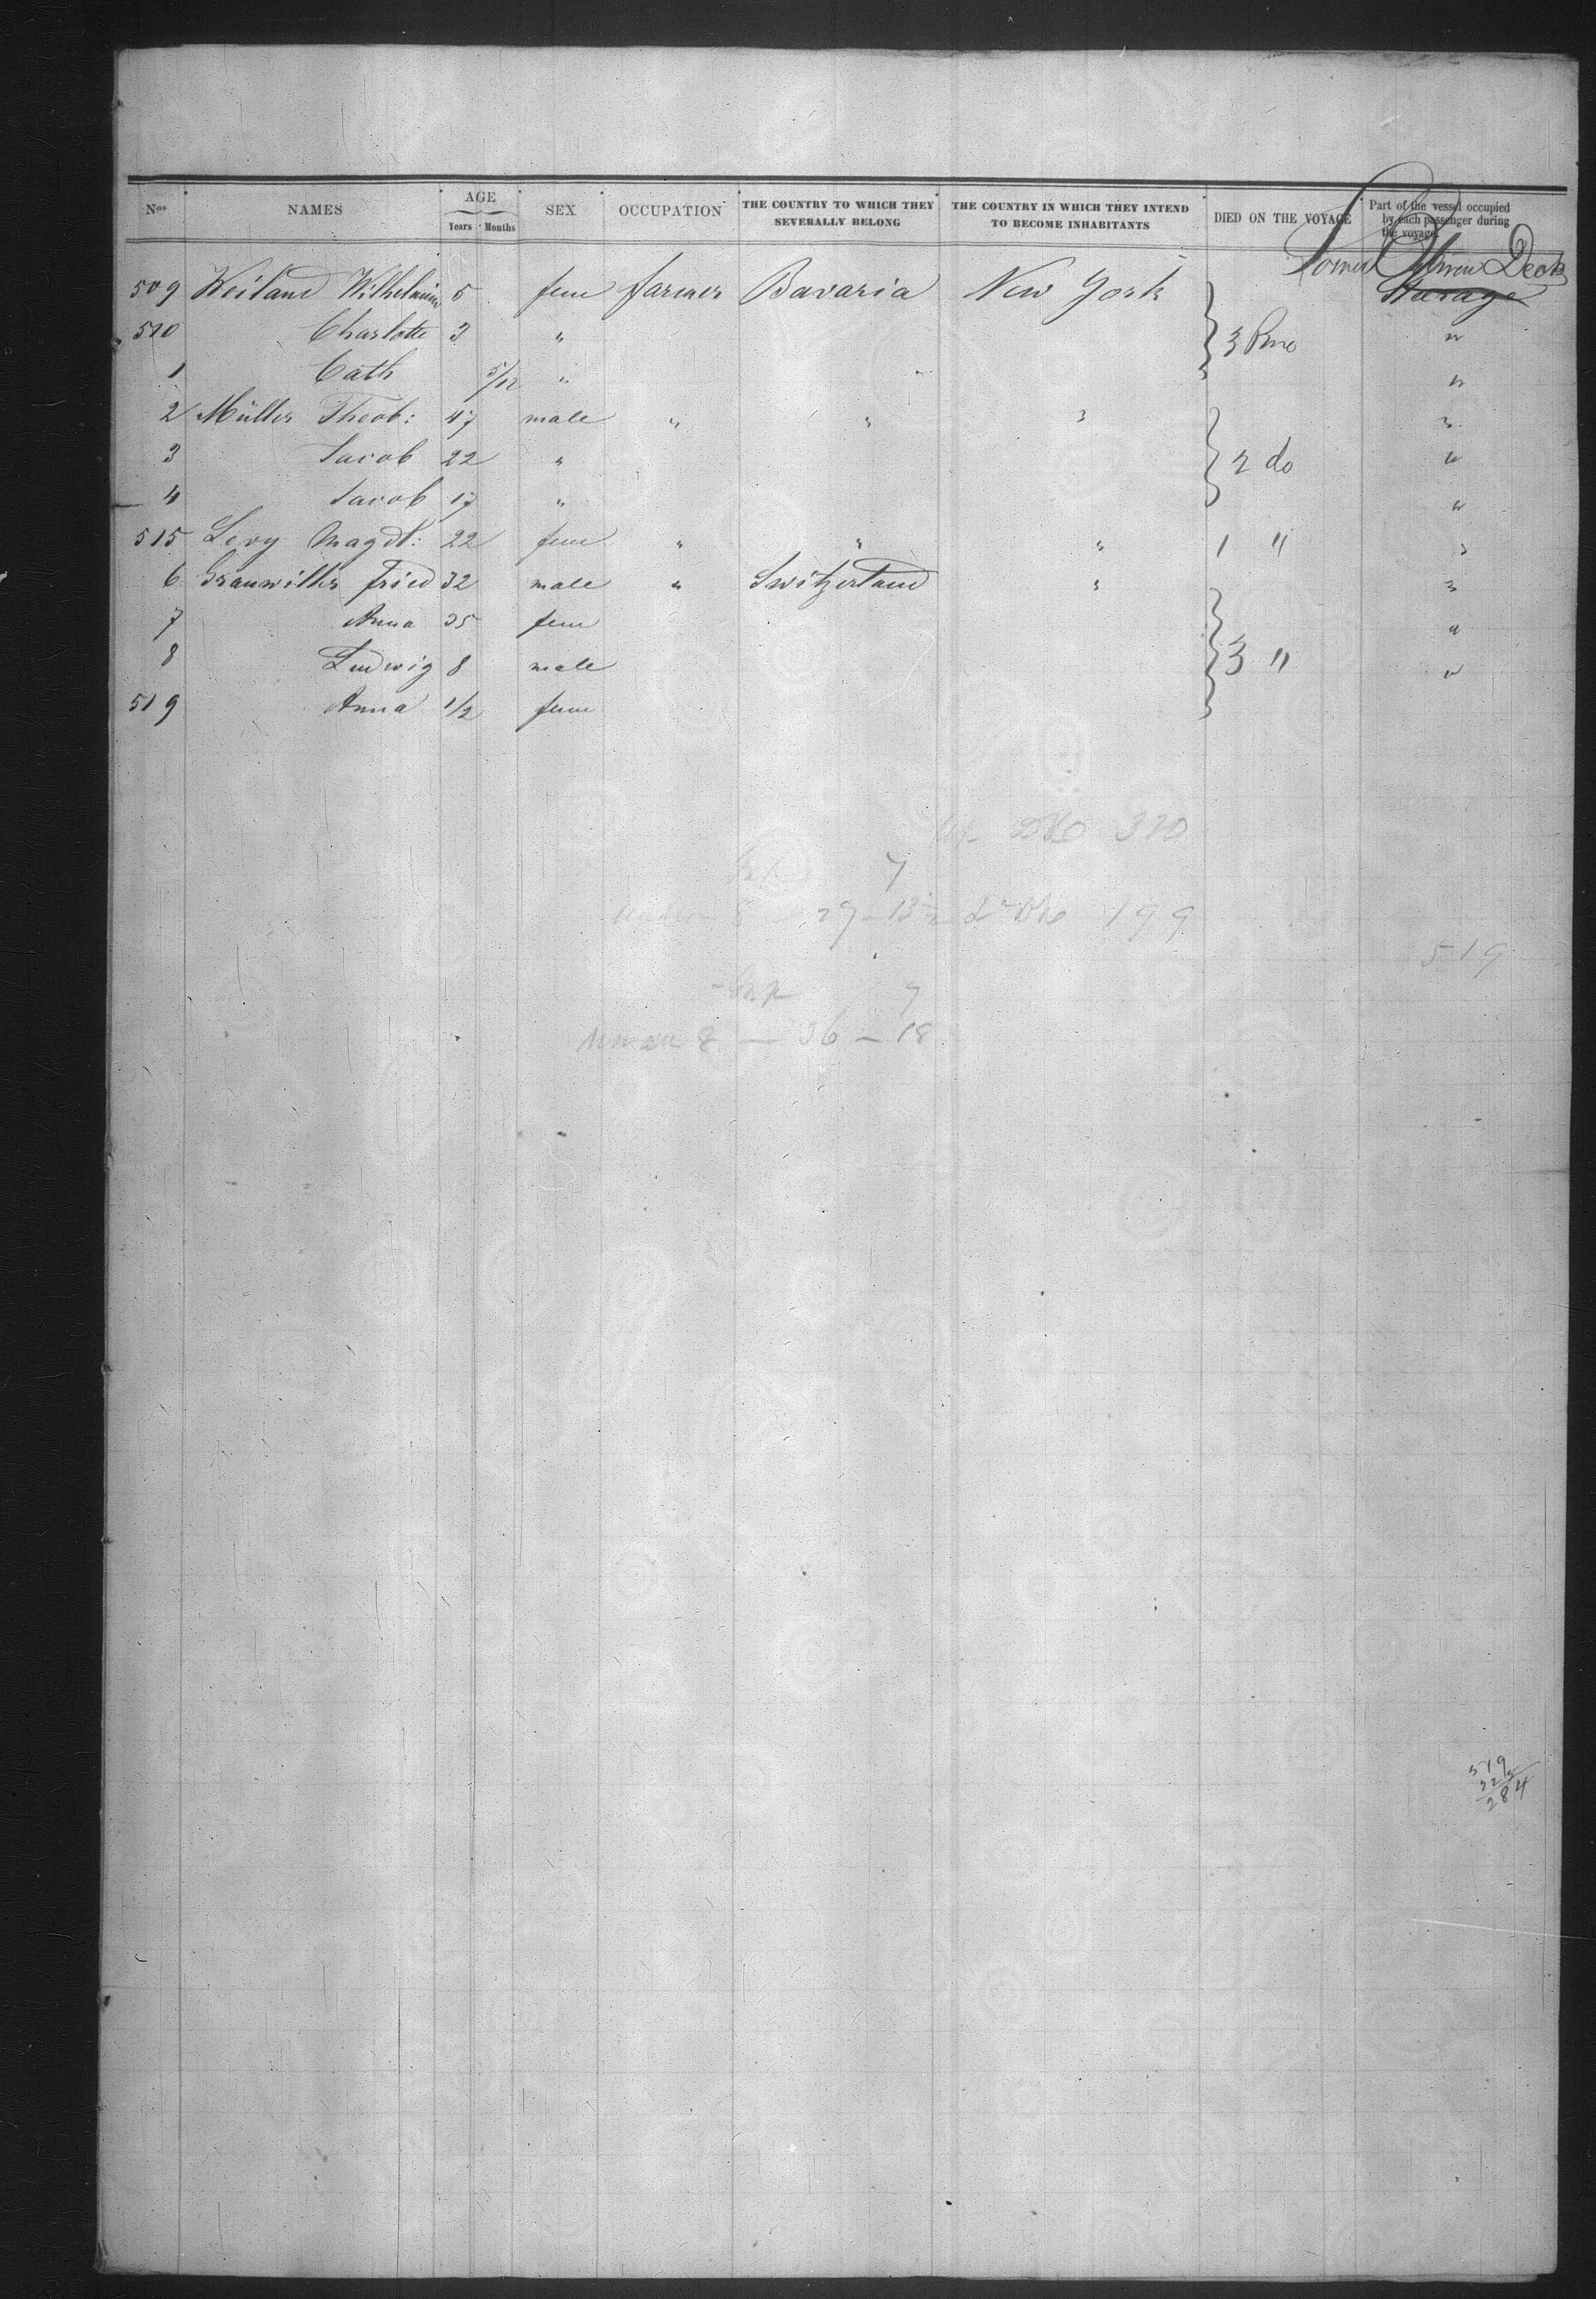 Nos NAMES AGE Years Months SEX OCCUPATION THE COUNTRY TO WHICH THEY SEVERALLY BELONG THE COUNTRY IN WHICH THEY INTEND TO BECOME INHABITANTS DIED ON THE VOYAGE Part of the vessel occupied by each passenger during the voyage.
Deck
509 Weiland Wilhelmine 5 fem farmer Bavaria New York Steerage
510 Charlotte 3 " 3 "
1 Cath 5/12 " "
2 Müller Theob: 47 male " " " "
3 Jacob 22 " 2 do "
4 Jacob 17 " "
515 Levy Magdl: 22 fem " " " 1 " "
6 Granwiller Fried 32 male " Switzerland " "
7 Anna 35 fem "
8 Ludwig 8 male 3 " "
519 Anna 1/2 fem
320
7
27 - 13 1/2 199
519
7
8 — 36 — 18
519
284